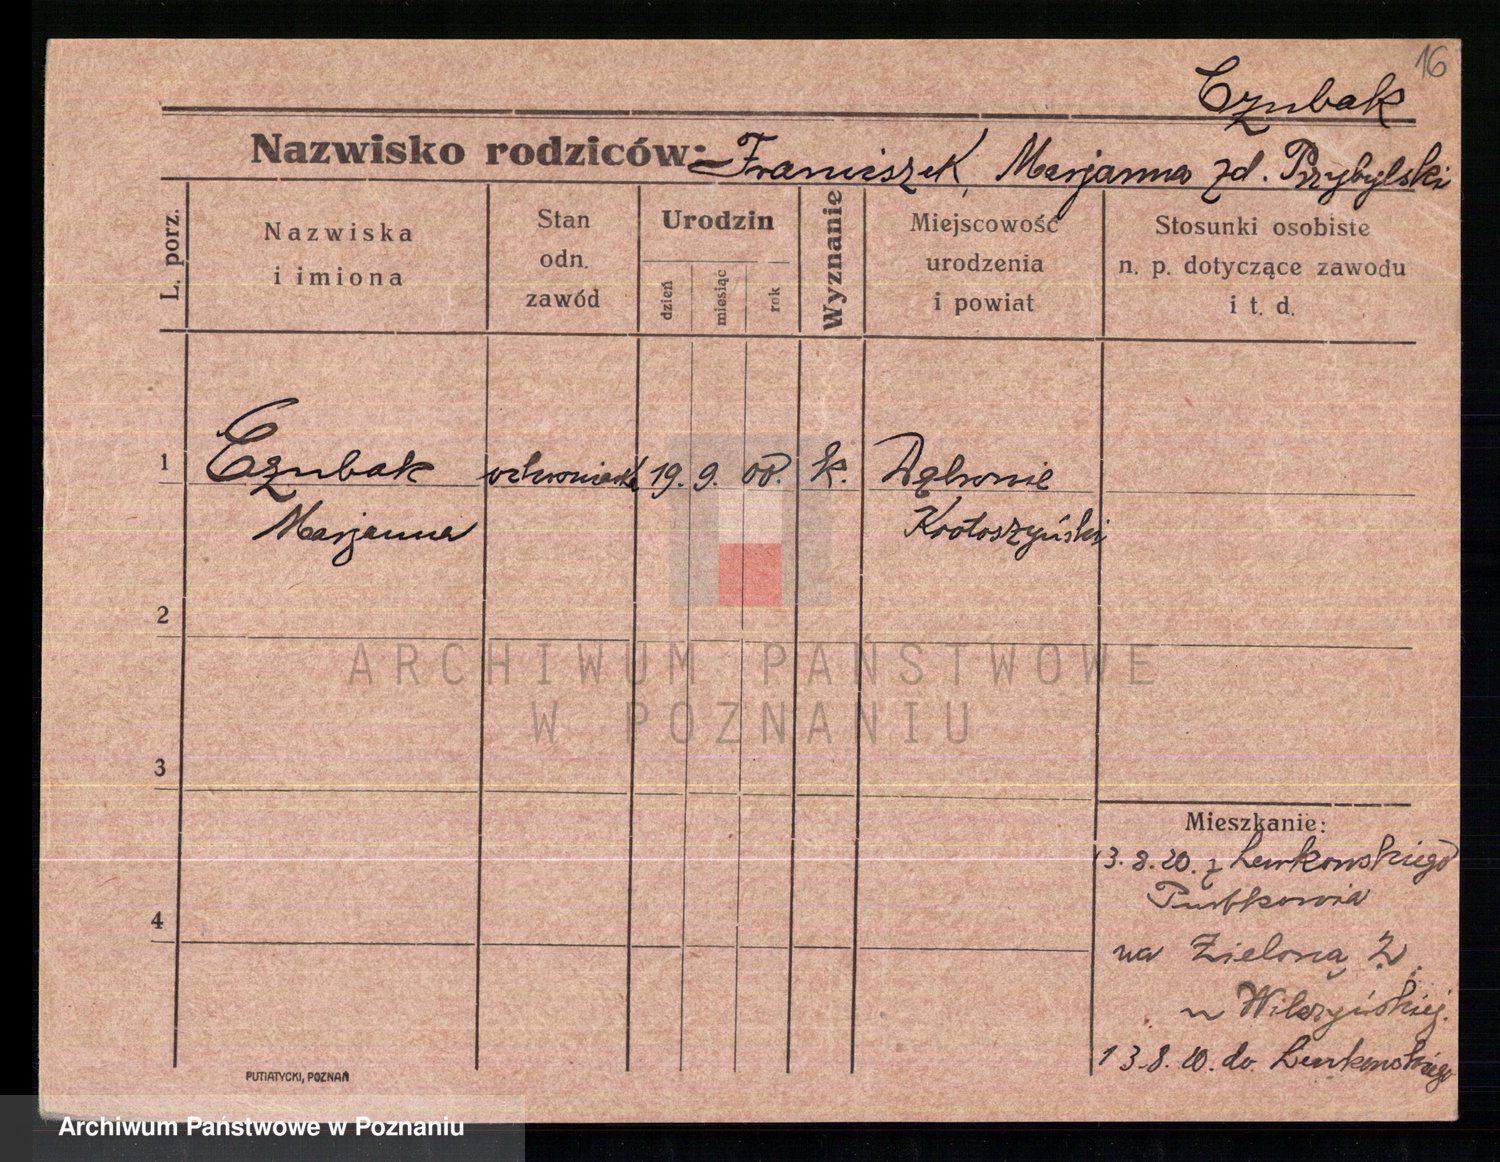 16
Czubak
Nazwisko rodziców: Franciszek, Marjanna zd. Przybylski
L. porz.
Nazwiska i imiona
Stan odn. zawód
Urodzin
dzień
miesiąc
rok
Wyznanie
Miejscowość urodzenia i powiat
Stosunki osobiste n. p. dotyczące zawodu i t. d.
1
Czubak 19. 9. 00. k.
Marjanna Krotoszyński
2
ARCHIWUM PAŃSTWOWE
W POZNANIU
3
Mieszkanie:
13. 8. 20. z Lewkowskiego
4
na Zieloną 2
u Wilczyńskiej.
13. 8. 20. do Lewkowskiego
PUTIATYCKI, POZNAŃ
Archiwum Państwowe w Poznaniu